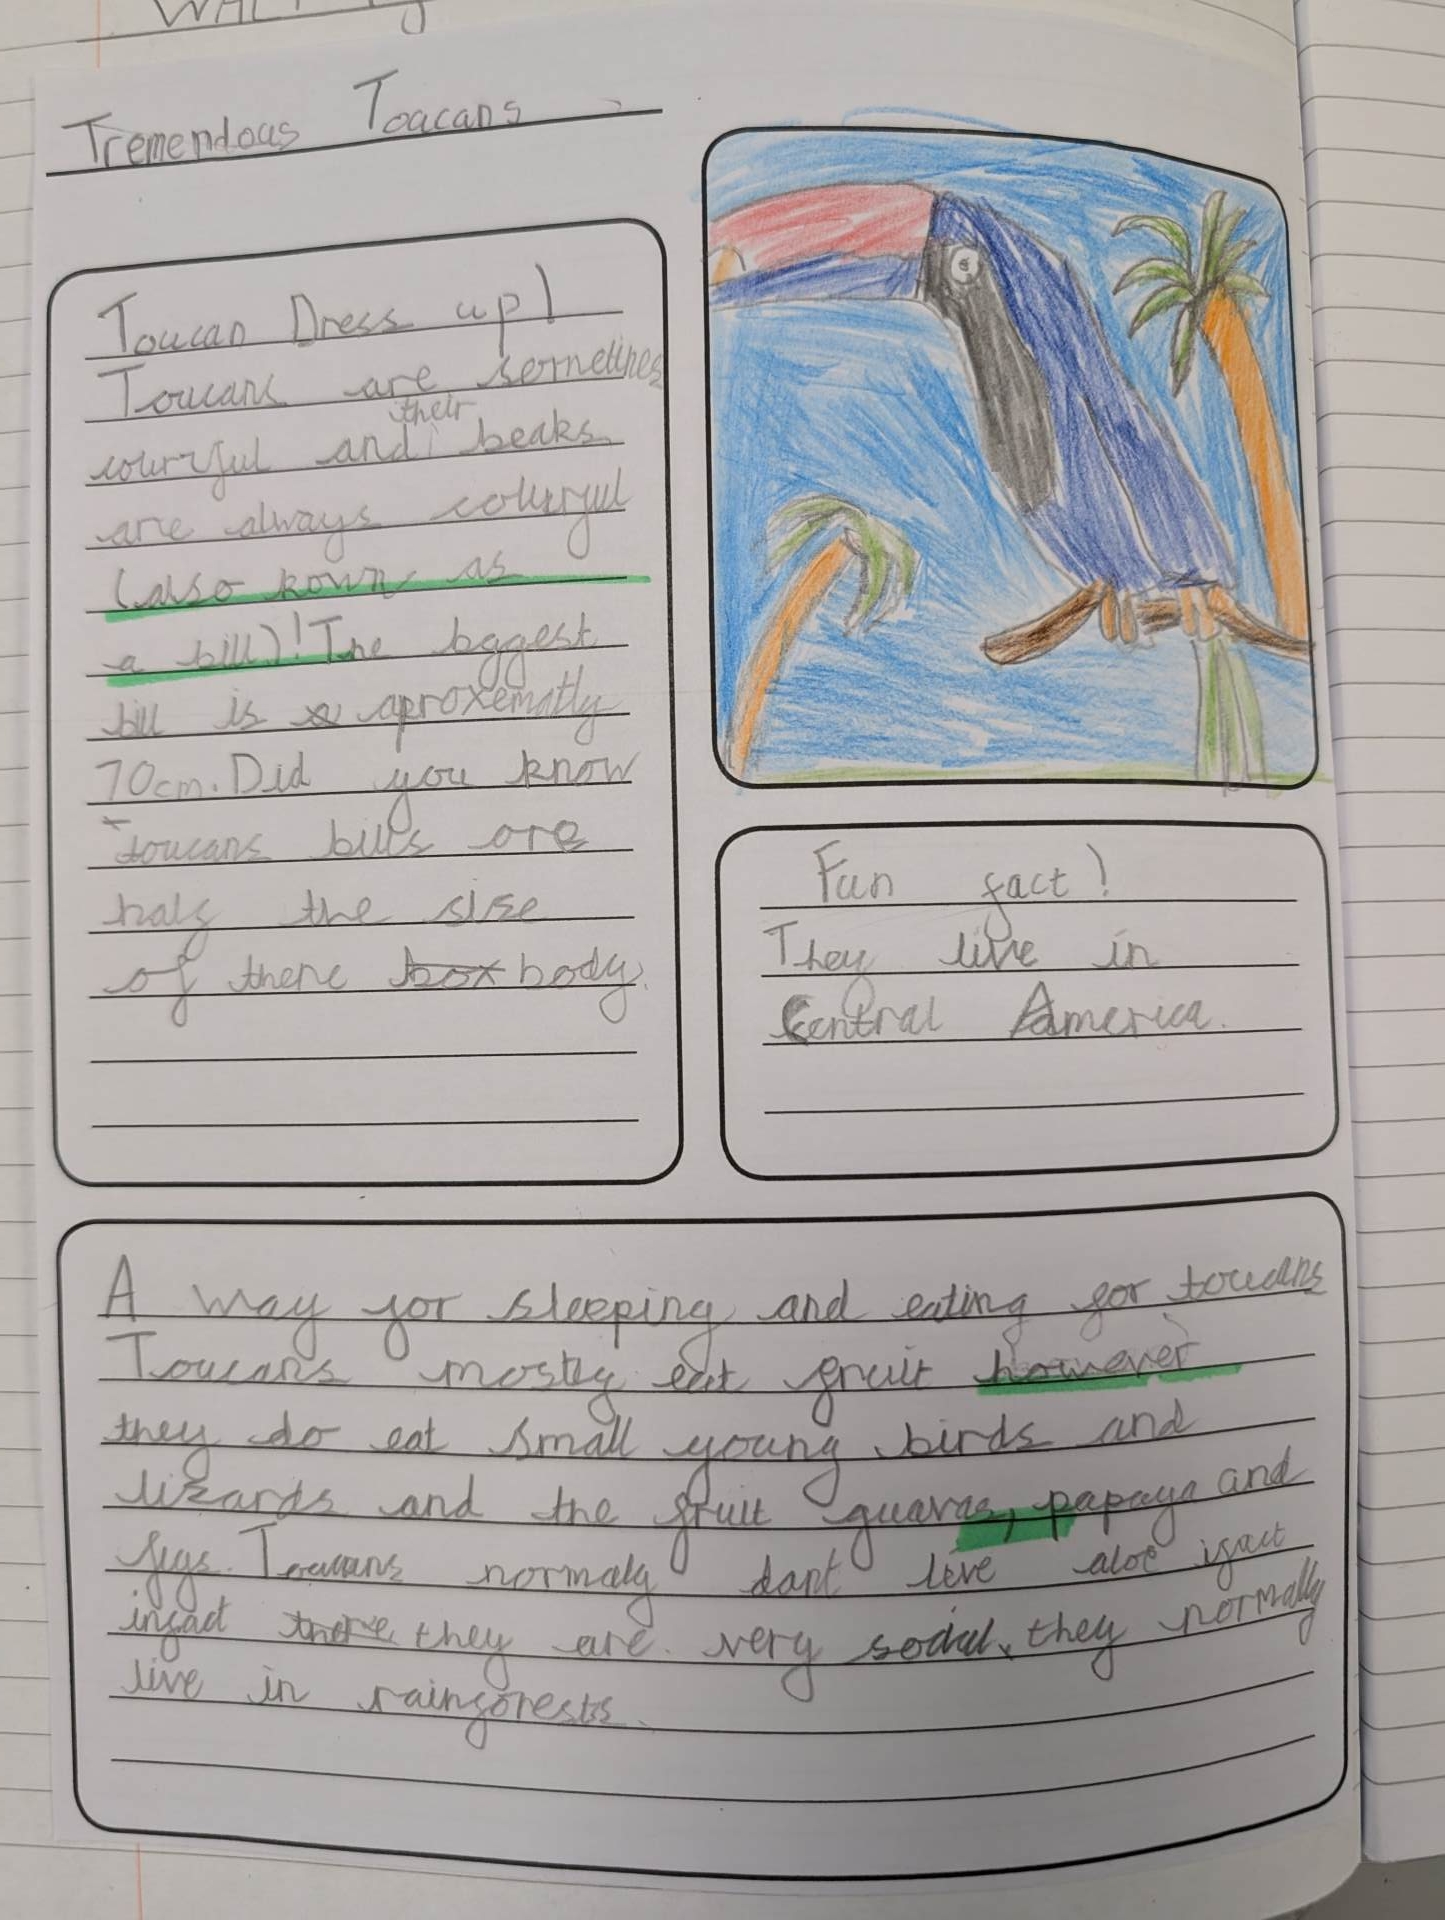 Tremendous Toacans
Toucan Dress up!
Toucans are somelines
their
courful and beaks
are always colurful
(also kown as
a bill)! The bggest
bill is aproxematly
70cm. Did you know
toucans bills are
half the sise
of there box body.
Fun fact!
They live in
Central America.
A way for sleeping and eating for toucans
Toucans mostly eat fruit however
they do eat small young birds and
lizards and the fruit guavas, papaya and
figs. Toucans normaly dont live aloe ifact
infact there they are very social, they normally
live in rainforests.